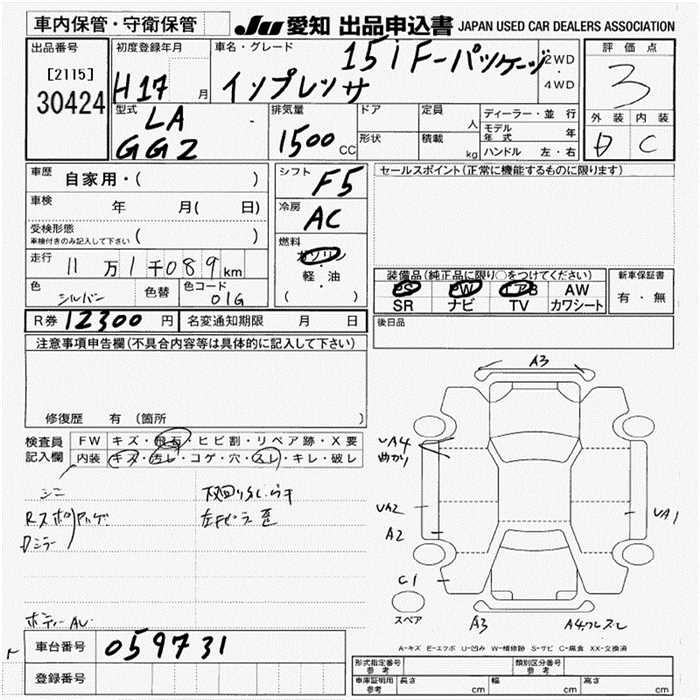 車内保管・守衛保管
JU 愛知 出品申込書 JAPAN USED CAR DEALERS ASSOCIATION
出品番号
[2115]
30424
初度登録年月
H17 月
車名・グレード
15i F-パッケージ
インプレッサ
2WD
・
4WD
評価点
3
外装 内装
C
型式
LA
GG2
排気量
1500 CC
ドア
形状
定員
人
積載
kg
ディーラー・並行
モデル年式 年
ハンドル 左・右
車歴
自家用・( )
車検
年 月( 日)
受検形態
車検付きのみ記入して下さい ( )
走行
11万1千089km
色
シルバー
色替
色コード
01G
シフト
F5
冷房
AC
燃料
ガソリン
・
軽・油
( )
セールスポイント(正常に機能するものに限ります)
装備品(純正品に限り○をつけてください)
PS PW エアB AW
SR ナビ TV カワシート
新車保証書
有・無
後日品
R券 12300 円
名変通知期限 月 日
注意事項申告欄(不具合内容等は具体的に記入して下さい)
修復歴 有 (箇所 )
検査員
記入欄
FW キズ・飛石・ヒビ割・リペア跡・X要
内装 キズ・汚レ・コゲ・穴・スレ・キレ・破レ
シミ
Dミラー
A3
UA4
曲がり
UA2
A2
C1
UA1
スペア
A3
A4
A-キズ E-エクボ U-凹み W-補修跡 S-サビ C-腐食 XX-交換済
車台番号
059731
登録番号
形式指定番号
参考
類別区分番号
参考
車庫証明用
参考
長さ cm
幅 cm
高さ cm